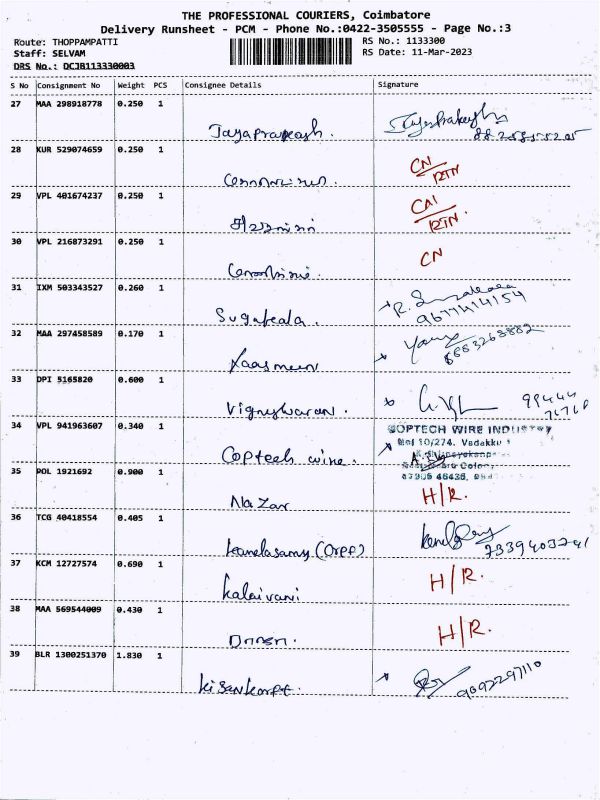 THE PROFESSIONAL COURIERS, Coimbatore
Delivery Runsheet - PCM - Phone No.:0422-3505555 - Page No.:3
Route: THOPPAMPATTI
RS No.: 1133300
Staff: SELVAM
RS Date: 11-Mar-2023
DRS No.: DCJB113330003
S No Consignment No Weight PCS Consignee Details Signature
27 MAA 298918778 0.250 1
Jayaprakash.
28 KUR 529074659 0.250 1
CN
RTN
29 VPL 401674237 0.250 1
RTN.
30 VPL 216873291 0.250 1
CN
31 IXM 503343527 0.260 1
Sugakala. 9677414154
32 MAA 297458589 0.170 1
Yaasmeen 8883268882
33 DPI 5165820 0.600 1
Vigneshwaran.
34 VPL 941963607 0.340 1
COPTECH WIRE INDUSTRY
Coptech wire.
35 POL 1921692 0.900 1
Nazar H/R.
36 TCG 40418554 0.405 1
kanalasamy (Orpp)
37 KCM 12727574 0.690 1
kalaivani H/R.
38 MAA 569544009 0.430 1
H/R.
39 BLR 1300251370 1.830 1
9092297110